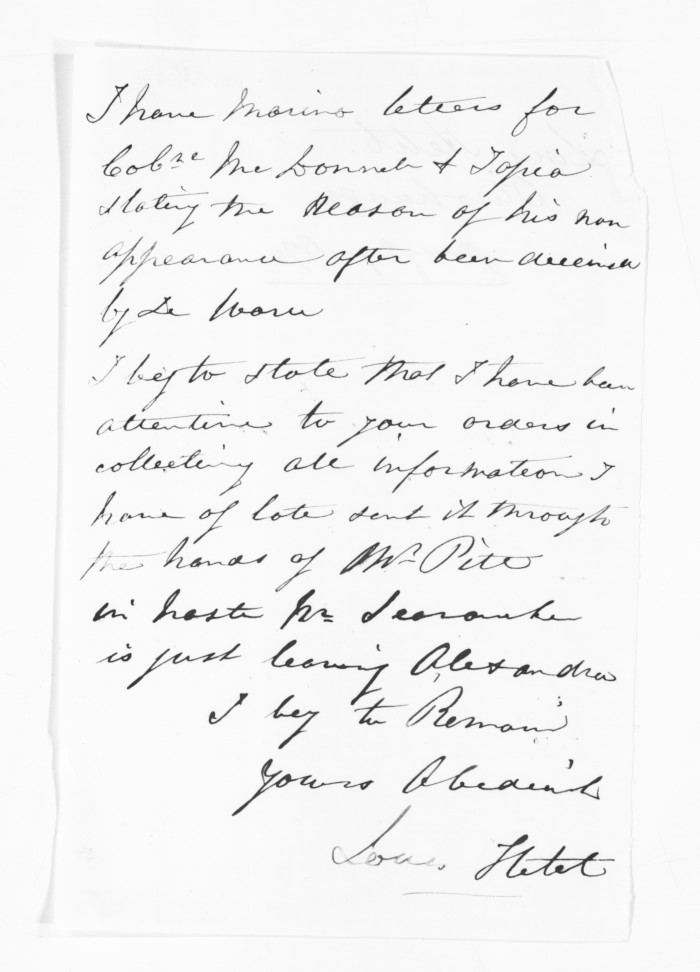 I have Marino letters for
Colne McDonnell & Topia
stating the Reason of his non
appearance after been deceived
by De
I beg to state that I have been
attentive to your orders in
collecting all information I
have of late sent it through
the hands of Mr Pitt
in haste Mr Searanke
is just leaving Alexandra
I beg to Remain
Yours Obedient
Louis Hetet